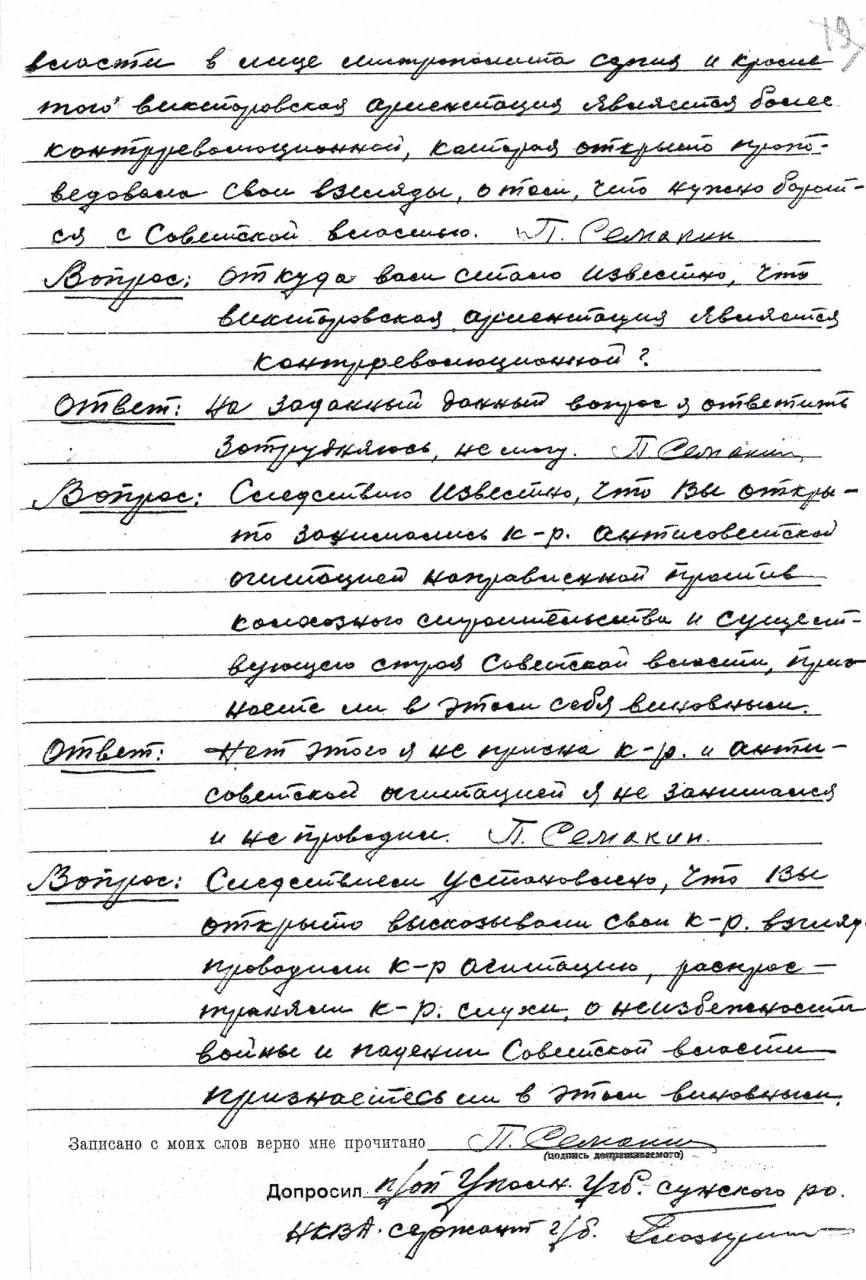 19
власти в лице митрополита Сергия и кроме
того викторовская ориентация является более
контрреволюционной, которая открыто пропо-
ведовала свои взгляды, о том, что нужно борот-
ся с Советской властью. П. Семакин
Вопрос: Откуда вам стало известно, что
викторовская ориентация является
контрреволюционной?
Ответ: На заданный данный вопрос я ответить
затрудняюсь, не могу. П Семакин
Вопрос: Следствию известно, что Вы откры-
то занимались к-р. антисоветской
агитацией направленной против
колхозного строительства и сущест-
вующего строя Советской власти, приз
наете ли в этом себя виновным.
Ответ: Нет этого я не призна к-р. и анти-
советской агитацией я не занимался
и не проводил. П. Семакин.
Вопрос: Следствием установлено, что Вы
открыто высказывали свои к-р. взгляд
проводили к-р агитацию, распрос-
траняли к-р. слухи, о неизбежности
войны и падении Советской власти
признаетесь ли в этом виновным.
Записано с моих слов верно мне прочитано П. Семакин
(подпись допрашиваемого)
Допросил п/оп Уполн. УГБ. Сунского ро.
НКВД. сержант г/б.